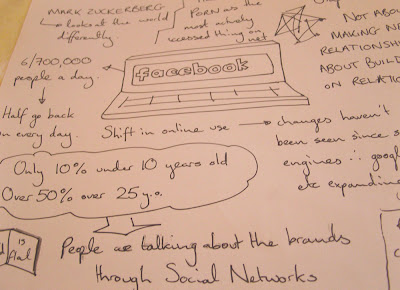 MARK ZUCKERBERG
→ looks at the world
differently.
PORN as the
most actively
accessed thing on
net
NOT ABOU
MAKING NE
RELATIONSH
ABOUT BUILD
ON RELATIO
6/700,000
people a day.
facebook
Half go back
on every day.
Shift in online use →
changes haven't
been seen since s
engines ∴ google
etc expanding
Only 10% under 10 years old
Over 50% over 25 y.o.
is
flat
People are talking about the brands
through Social Networks